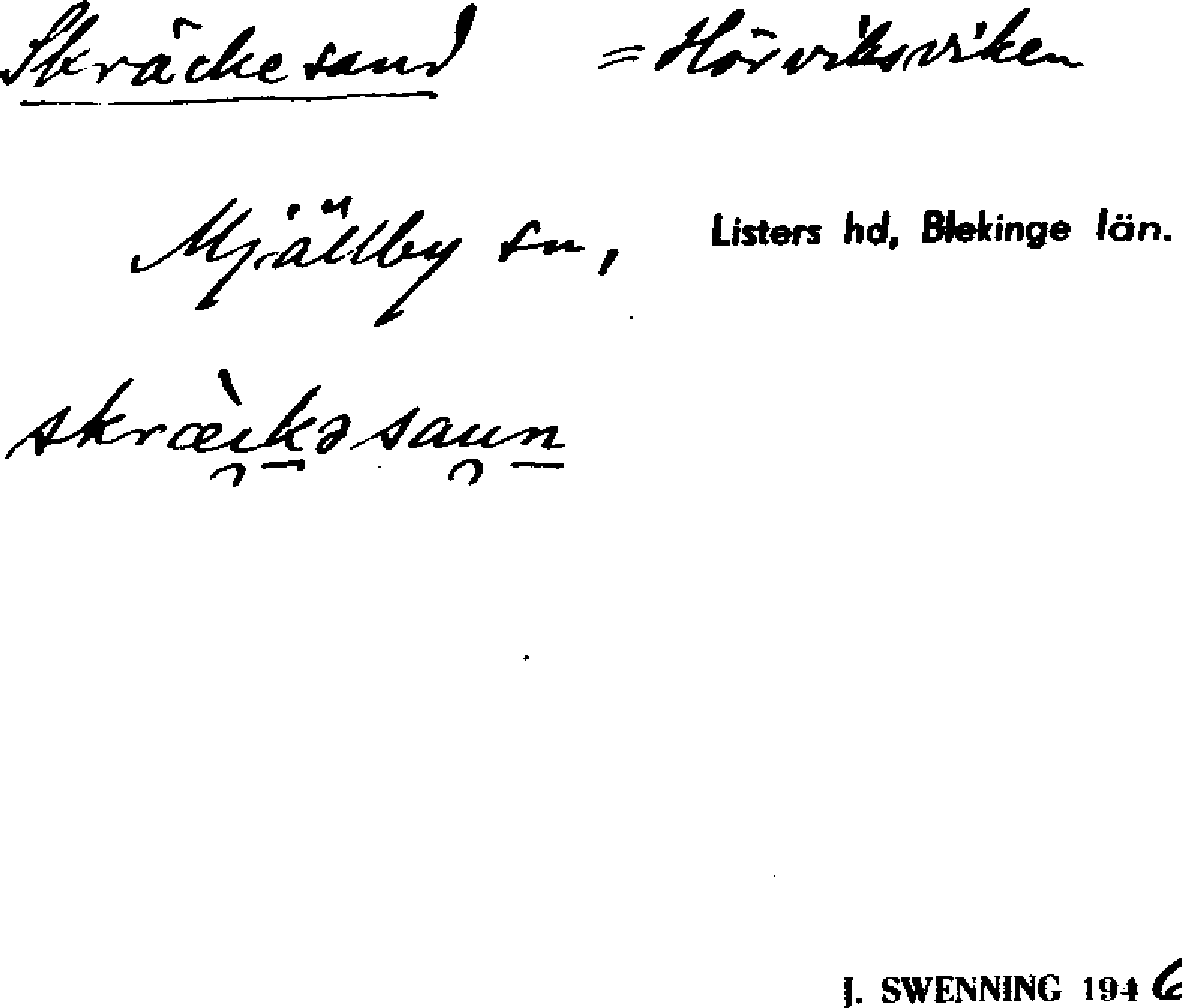 Skräckesand = Hörviksviken
Mjällby sn, Listers hd, Blekinge län.
skræ̀i̯k̲ə sau̯n̲
J. SWENNING 1946